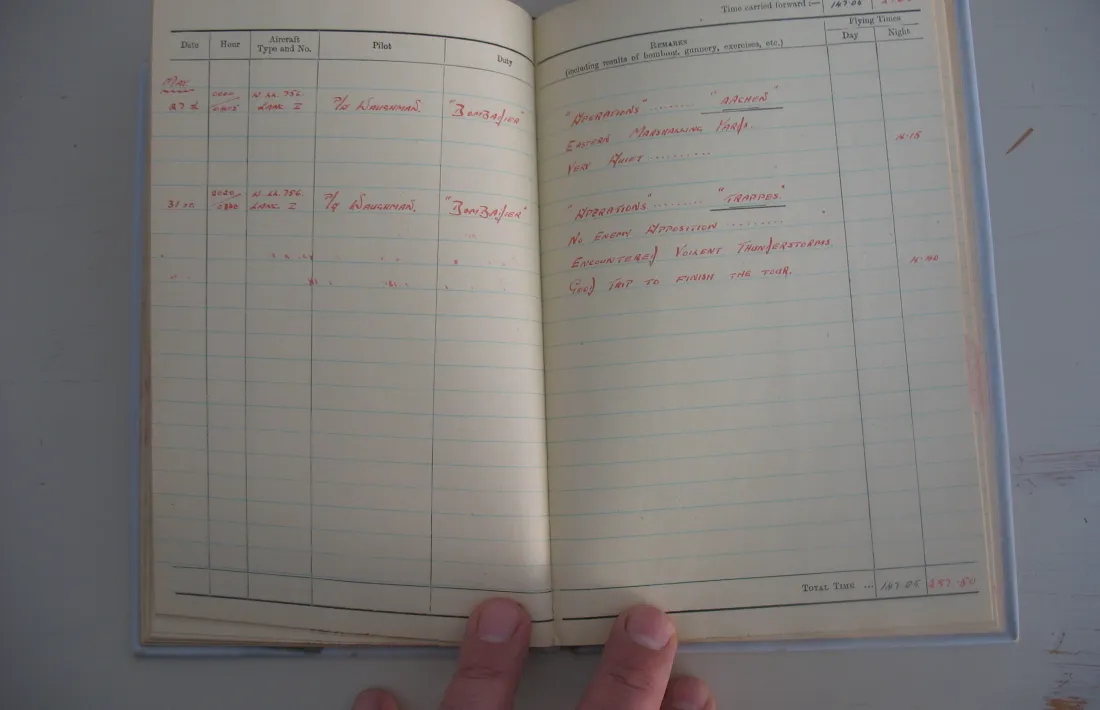 Time carried forward :— 147·05
Date Hour Aircraft Type and No. Pilot Duty
REMARKS (including results of bombing, gunnery, exercises, etc.)
Flying Times
Day Night
MAY
27th W LL 756 LANC I WAUGHMAN. "BOMBADIER"
"OPERATIONS" ........ "AACHEN"
EASTERN MARSHALLING YARDS.
VERY QUIET ........
4·15
31st 2020 W LL 756 LANC I WAUGHMAN. "BOMBADIER"
"OPERATIONS" ........ "TRAPPES"
NO ENEMY OPPOSITION ........
ENCOUNTERED VOILENT THUNDERSTORMS.
GOOD TRIP TO FINISH THE TOUR.
4·40
TOTAL TIME ... 147·05 257·50